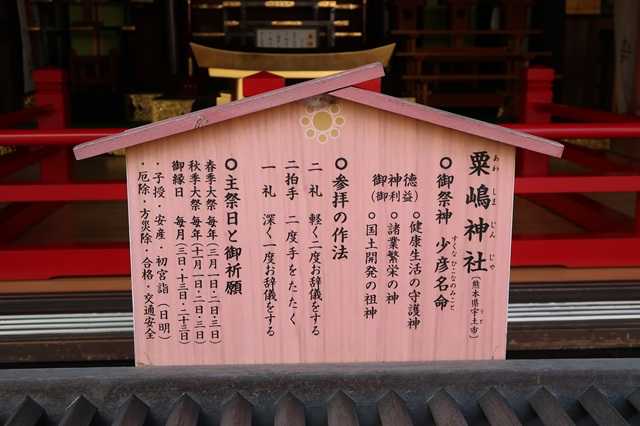 粟嶋神社（熊本県宇土市）
あわ しま じん じゃ
うと
○御祭神 少彦名命
すくなひこなのみこと
御神徳（御利益）
○健康生活の守護神
○諸業繁栄の神
○国土開発の祖神
○参拝の作法
二礼 軽く二度お辞儀をする
二拍手 二度手をたたく
一礼 深く一度お辞儀をする
○主祭日と御祈願
春季大祭 毎年（三月一日・二日・三日）
秋季大祭 毎年（十一月一日・二日・三日）
御縁日 毎月（三日・十三日・二十三日）
・子授・安産・初宮詣（日明）
・厄除・方災除・合格・交通安全